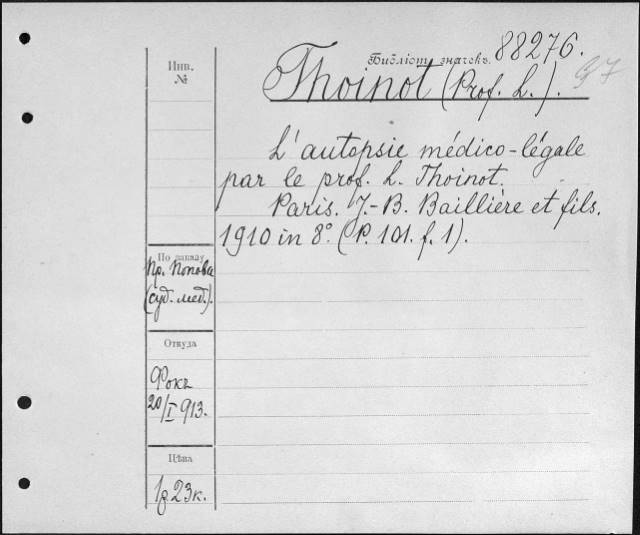 Библіот. значекъ. 88276.
Инв.
№
Thoinot (Prof. L.). 37
L'autopsie médico-légale
par le prof. L. Thoinot.
Paris. J.-B. Baillière et fils.
1910 in 8° (P. 101. f. 1).
По заказу
Пр. Попова
(суд. мед.).
Откуда
Фокъ
20/I 913.
Цѣна
1р 23к.